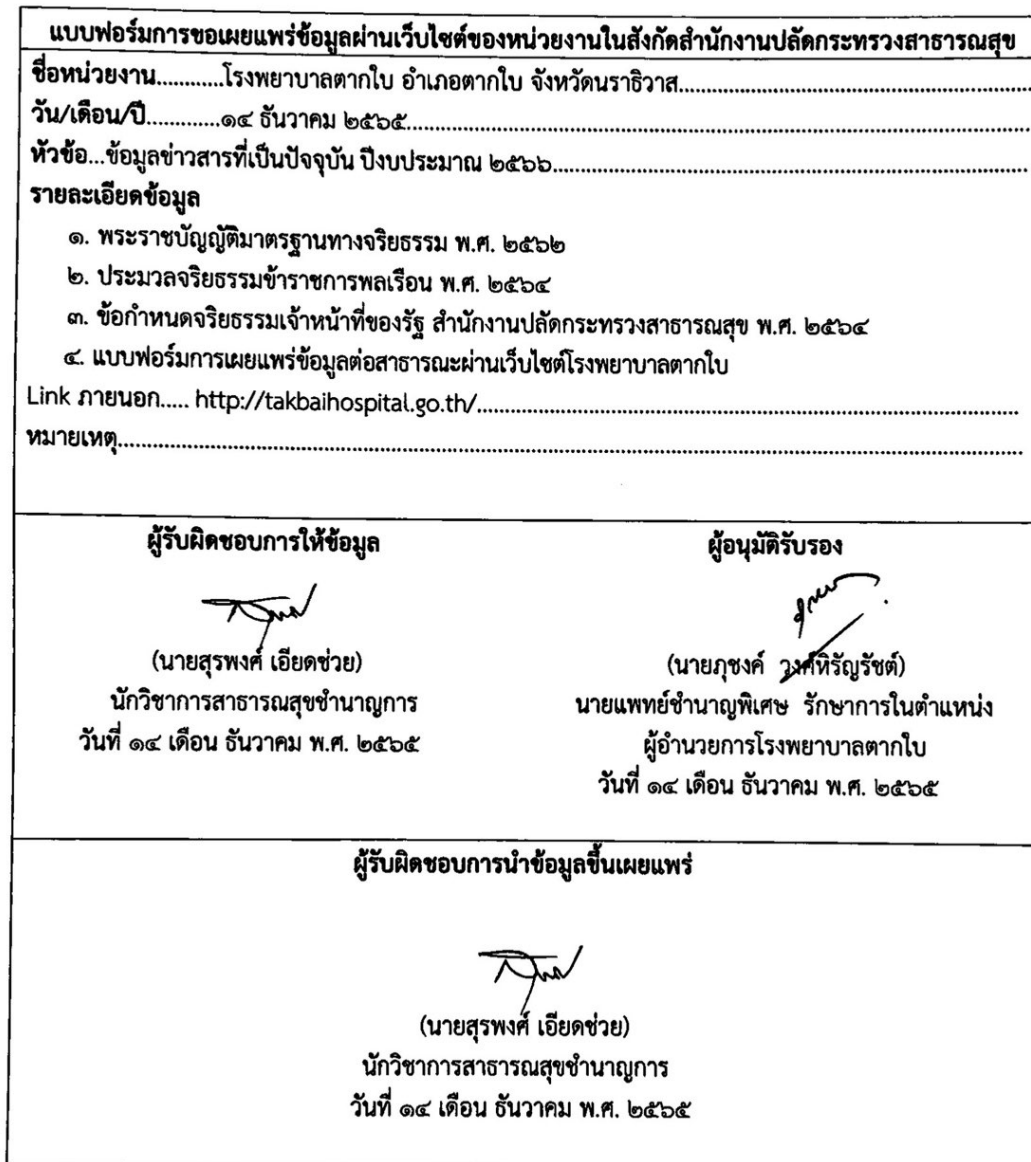 แบบฟอร์มการขอเผยแพร่ข้อมูลผ่านเว็บไซต์ของหน่วยงานในสังกัดสำนักงานปลัดกระทรวงสาธารณสุข
ชื่อหน่วยงาน............โรงพยาบาลตากใบ อำเภอตากใบ จังหวัดนราธิวาส............
วัน/เดือน/ปี.............๑๔ ธันวาคม ๒๕๖๕............
หัวข้อ...ข้อมูลข่าวสารที่เป็นปัจจุบัน ปีงบประมาณ ๒๕๖๖............
รายละเอียดข้อมูล
๑. พระราชบัญญัติมาตรฐานทางจริยธรรม พ.ศ. ๒๕๖๒
๒. ประมวลจริยธรรมข้าราชการพลเรือน พ.ศ. ๒๕๖๔
๓. ข้อกำหนดจริยธรรมเจ้าหน้าที่ของรัฐ สำนักงานปลัดกระทรวงสาธารณสุข พ.ศ. ๒๕๖๔
๔. แบบฟอร์มการเผยแพร่ข้อมูลต่อสาธารณะผ่านเว็บไซต์โรงพยาบาลตากใบ
Link ภายนอก..... http://takbaihospital.go.th/............
หมายเหตุ............
ผู้รับผิดชอบการให้ข้อมูล
(นายสุรพงศ์ เอียดช่วย)
นักวิชาการสาธารณสุขชำนาญการ
วันที่ ๑๔ เดือน ธันวาคม พ.ศ. ๒๕๖๕
ผู้อนุมัติรับรอง
(นายภุชงค์ วงศ์หิรัญรัชต์)
นายแพทย์ชำนาญพิเศษ รักษาการในตำแหน่ง
ผู้อำนวยการโรงพยาบาลตากใบ
วันที่ ๑๔ เดือน ธันวาคม พ.ศ. ๒๕๖๕
ผู้รับผิดชอบการนำข้อมูลขึ้นเผยแพร่
(นายสุรพงศ์ เอียดช่วย)
นักวิชาการสาธารณสุขชำนาญการ
วันที่ ๑๔ เดือน ธันวาคม พ.ศ. ๒๕๖๕